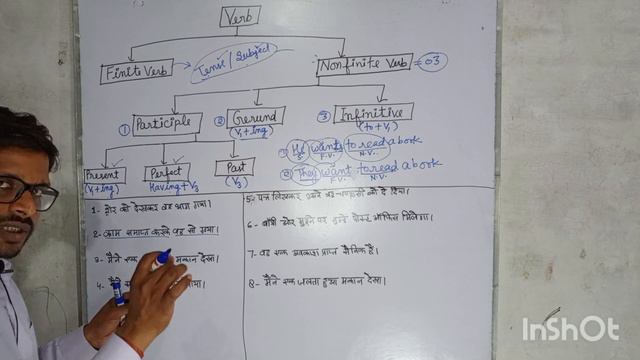 Verb
Finite Verb → Tense / Subject
Nonfinite Verb = 03
① Participle ② Gerund ③ Infinitive
(V₁ + ing) (to + V₁)
Present Perfect Past
(V₁ + ing) Having + V₃ (V₃)
① He wants to read a book
S F.V. N.V.
② They want to read a book
F.V. N.V.
1- शेर को देखकर वह भाग गया।
2- काम समाप्त करके वह सो गया।
3- मैंने एक मकान देखा।
4- मैंने
5- पत्र लिखकर उसने को दे दिया।
6- बायीं ओर मुड़ने पर तुम्हें पोस्ट ऑफिस मिलेगा।
7- वह एक अवकाश प्राप्त सैनिक है।
8- मैंने एक जलता हुआ मकान देखा।
InShOt